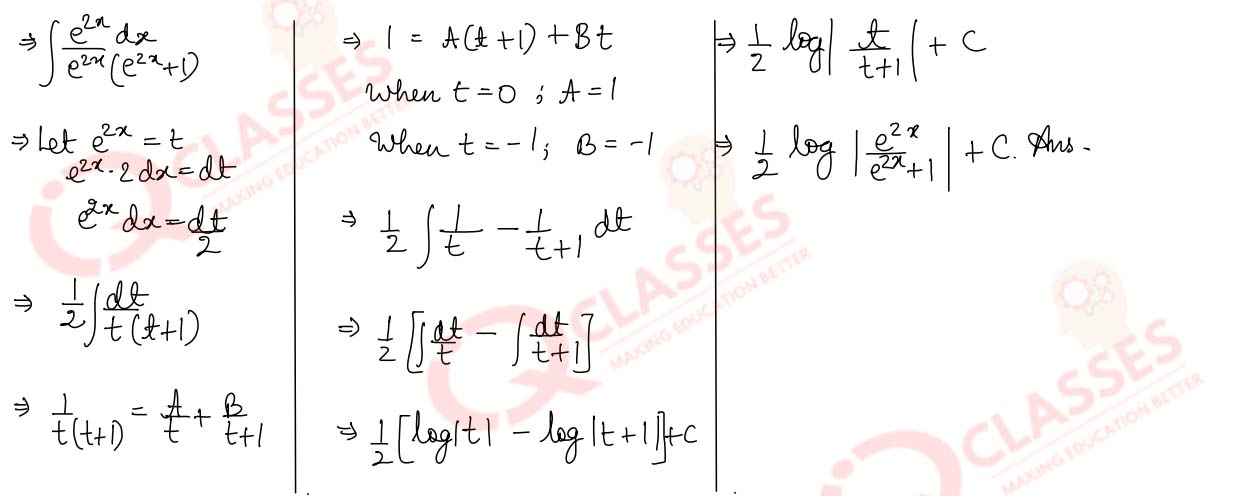 ⇒ ∫ e^{2x} dx / e^{2x}(e^{2x}+1)
⇒ Let e^{2x} = t
e^{2x}·2dx = dt
e^{2x} dx = dt/2
⇒ 1/2 ∫ dt / t(t+1)
⇒ 1/t(t+1) = A/t + B/t+1
⇒ 1 = A(t+1) + Bt
When t=0 ; A=1
When t=-1; B=-1
⇒ 1/2 ∫ 1/t − 1/t+1 dt
⇒ 1/2 [∫ dt/t − ∫ dt/t+1]
⇒ 1/2 [log|t| − log|t+1|]+C
⇒ 1/2 log| t/t+1 | + C
⇒ 1/2 log | e^{2x}/e^{2x}+1 | + C. Ans.
IQ CLASSES
MAKING EDUCATION BETTER
IQ CLASSES
MAKING EDUCATION BETTER
IQ CLASSES
MAKING EDUCATION BETTER